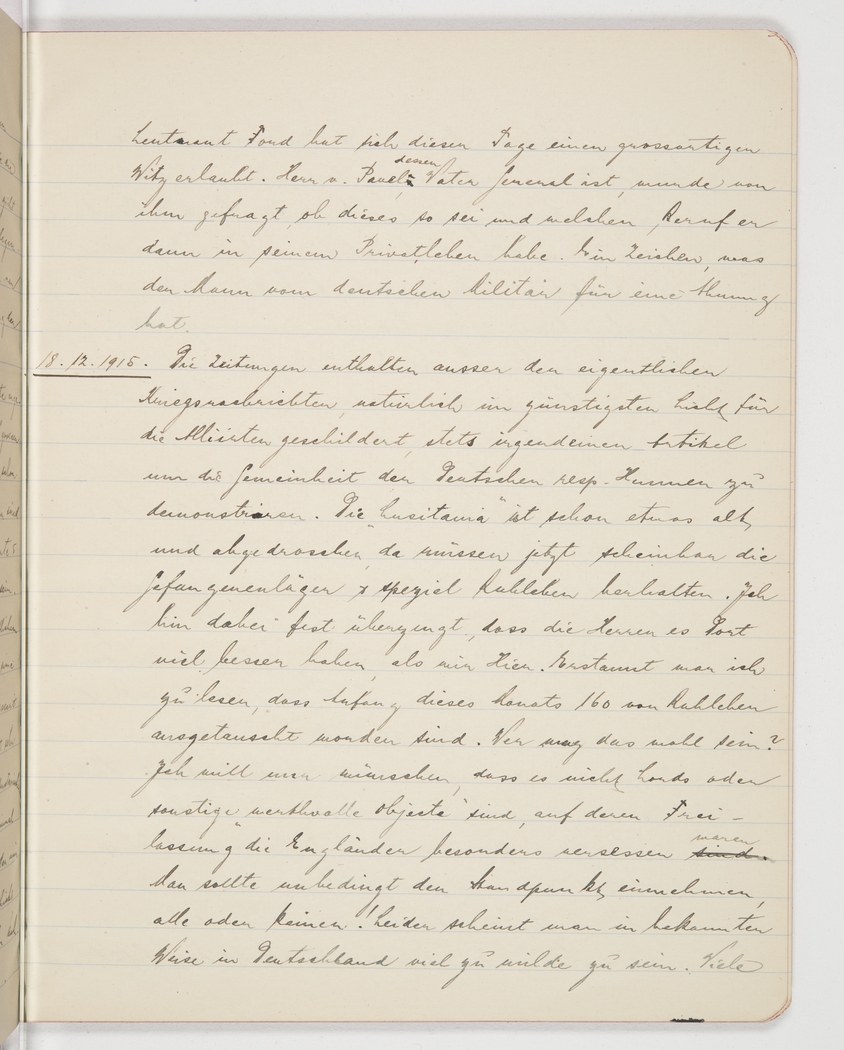 Leutnant Ford hat sich dieser Tage einen grossartigen
Witz erlaubt. Herr v. Pawel, dessen Vater General ist, wurde von
ihm gefragt, ob dieses so sei und welchen Beruf er
dann in seinem Privatleben habe. Ein Zeichen, was
der Mann vom deutschen Militär für eine Ahnung
hat.
18.12.1915. Die Zeitungen enthalten ausser den eigentlichen
Kriegsnachrichten, natürlich im günstigsten Licht für
die Alliirten geschildert, stets irgendeinen Artikel
um die Gemeinheit der Deutschen resp. Hunnen zu
demonstriren. Die "Lusitania" ist schon etwas alt
und abgedroschen, da müssen jetzt scheinbar die
Gefangenenläger & speziel Ruhleben herhalten. Ich
bin dabei fest überzeugt, dass die Herren es Dort
viel besser haben, als wir Hier. Erstaunt war ich
zu lesen, dass Anfang dieses Monats 160 von Ruhleben
ausgetauscht worden sind. Wer mag das wohl sein?
Ich will nur wünschen, dass es nicht Lords oder
sonstige "werthvolle Objecte" sind, auf deren Frei-
lassung die Engländer besonders versessen waren sind.
Man sollte unbedingt den Standpunkt einnehmen,
alle oder keinen! Leider scheint man in bekannten
Weise in Deutschland viel zu milde zu sein. Viele